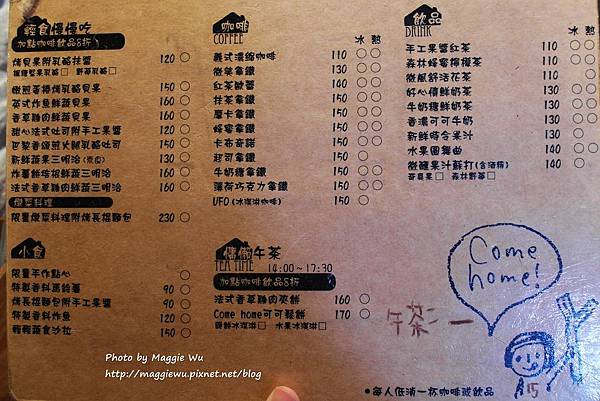 輕食慢慢吃
加點咖啡飲品8折
烤貝果附乳酪抹醬 120 ○
150 ○
英式炸魚鮮蔬貝果 160 ○
香草雞肉鮮蔬貝果 160 ○
甜心法式吐司附手工果醬 150 ○
150 ○
新鮮蔬果三明治 150 ○
160 ○
法式香草雞肉鮮蔬三明治 160 ○
燉菜料理
限量燉菜料理附烤長棍麵包 230 ○
小食
限量手作點心 ○
特製香料馬鈴薯 90 ○
烤長棍麵包附手工果醬 90 ○
特製香料炸魚 120 ○
輕輕蔬食沙拉 150 ○
咖啡
COFFEE
冰 熱
義式濃縮咖啡 110 ○ ○
微笑拿鐵 130 ○ ○
紅茶歐蕾 130 ○ ○
抹茶拿鐵 150 ○ ○
摩卡拿鐵 150 ○ ○
蜂蜜拿鐵 150 ○ ○
卡布奇諾 150 ○ ○
起司拿鐵 150 ○ ○
牛奶糖拿鐵 150 ○ ○
薄荷巧克力拿鐵 150 ○ ○
UFO (冰淇淋咖啡) 150 ○
慵懶午茶
TEA TIME 14:00~17:30
加點咖啡飲品8折
法式香草雞肉夾餅 160 ○
Come home可可鬆餅 170 ○
鮮奶冰淇淋□ 水果冰淇淋□
飲品
DRINK
冰 熱
手工果醬紅茶 110 ○ ○
森林蜂蜜檸檬茶 110 ○ ○
微風舒活花茶 110 ○ ○
好心情鮮奶茶 130 ○ ○
牛奶糖鮮奶茶 130 ○ ○
香濃可可牛奶 130 ○ ○
新鮮時令果汁 130 ○
水果圓舞曲 140 ○ ○
微醺果汁蘇打 (含酒精) 140 ○
百香果□ 森林野莓□
Come
home!
午茶二一
A15
•每人低消一杯咖啡或飲品
Photo by Maggie Wu
http://maggiewu.pixnet.net/blog